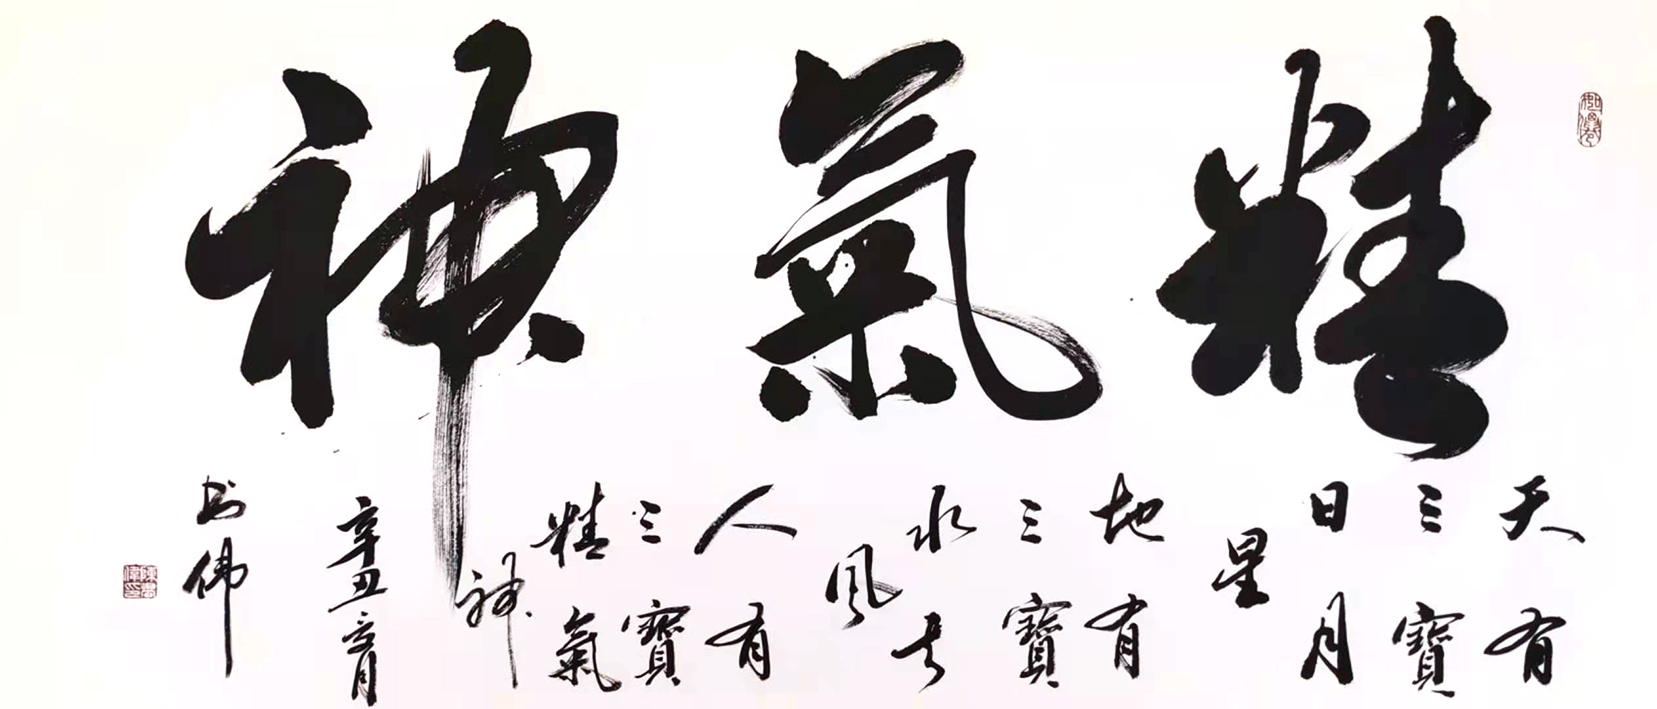 精氣神
天有
三寶
日月
星
地有
三寶
水火
風
人有
三寶
精氣
神
辛丑之月
書偉